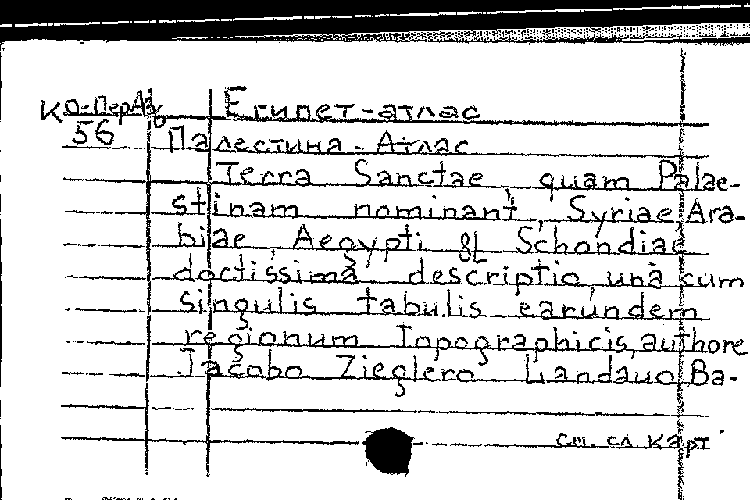 КО-ПерАз Египет-атлас
56 Палестина-Атлас
Terra Sanctae, quam Palae-
stinam nominant, Syriae, Ara-
biae, Aegypti & Schondiae
doctissima descriptio, unà cum
singulis tabulis earundem
regionum Topographicis, authore
Jacobo Zieglero Landauo Ba-
см. сл карт